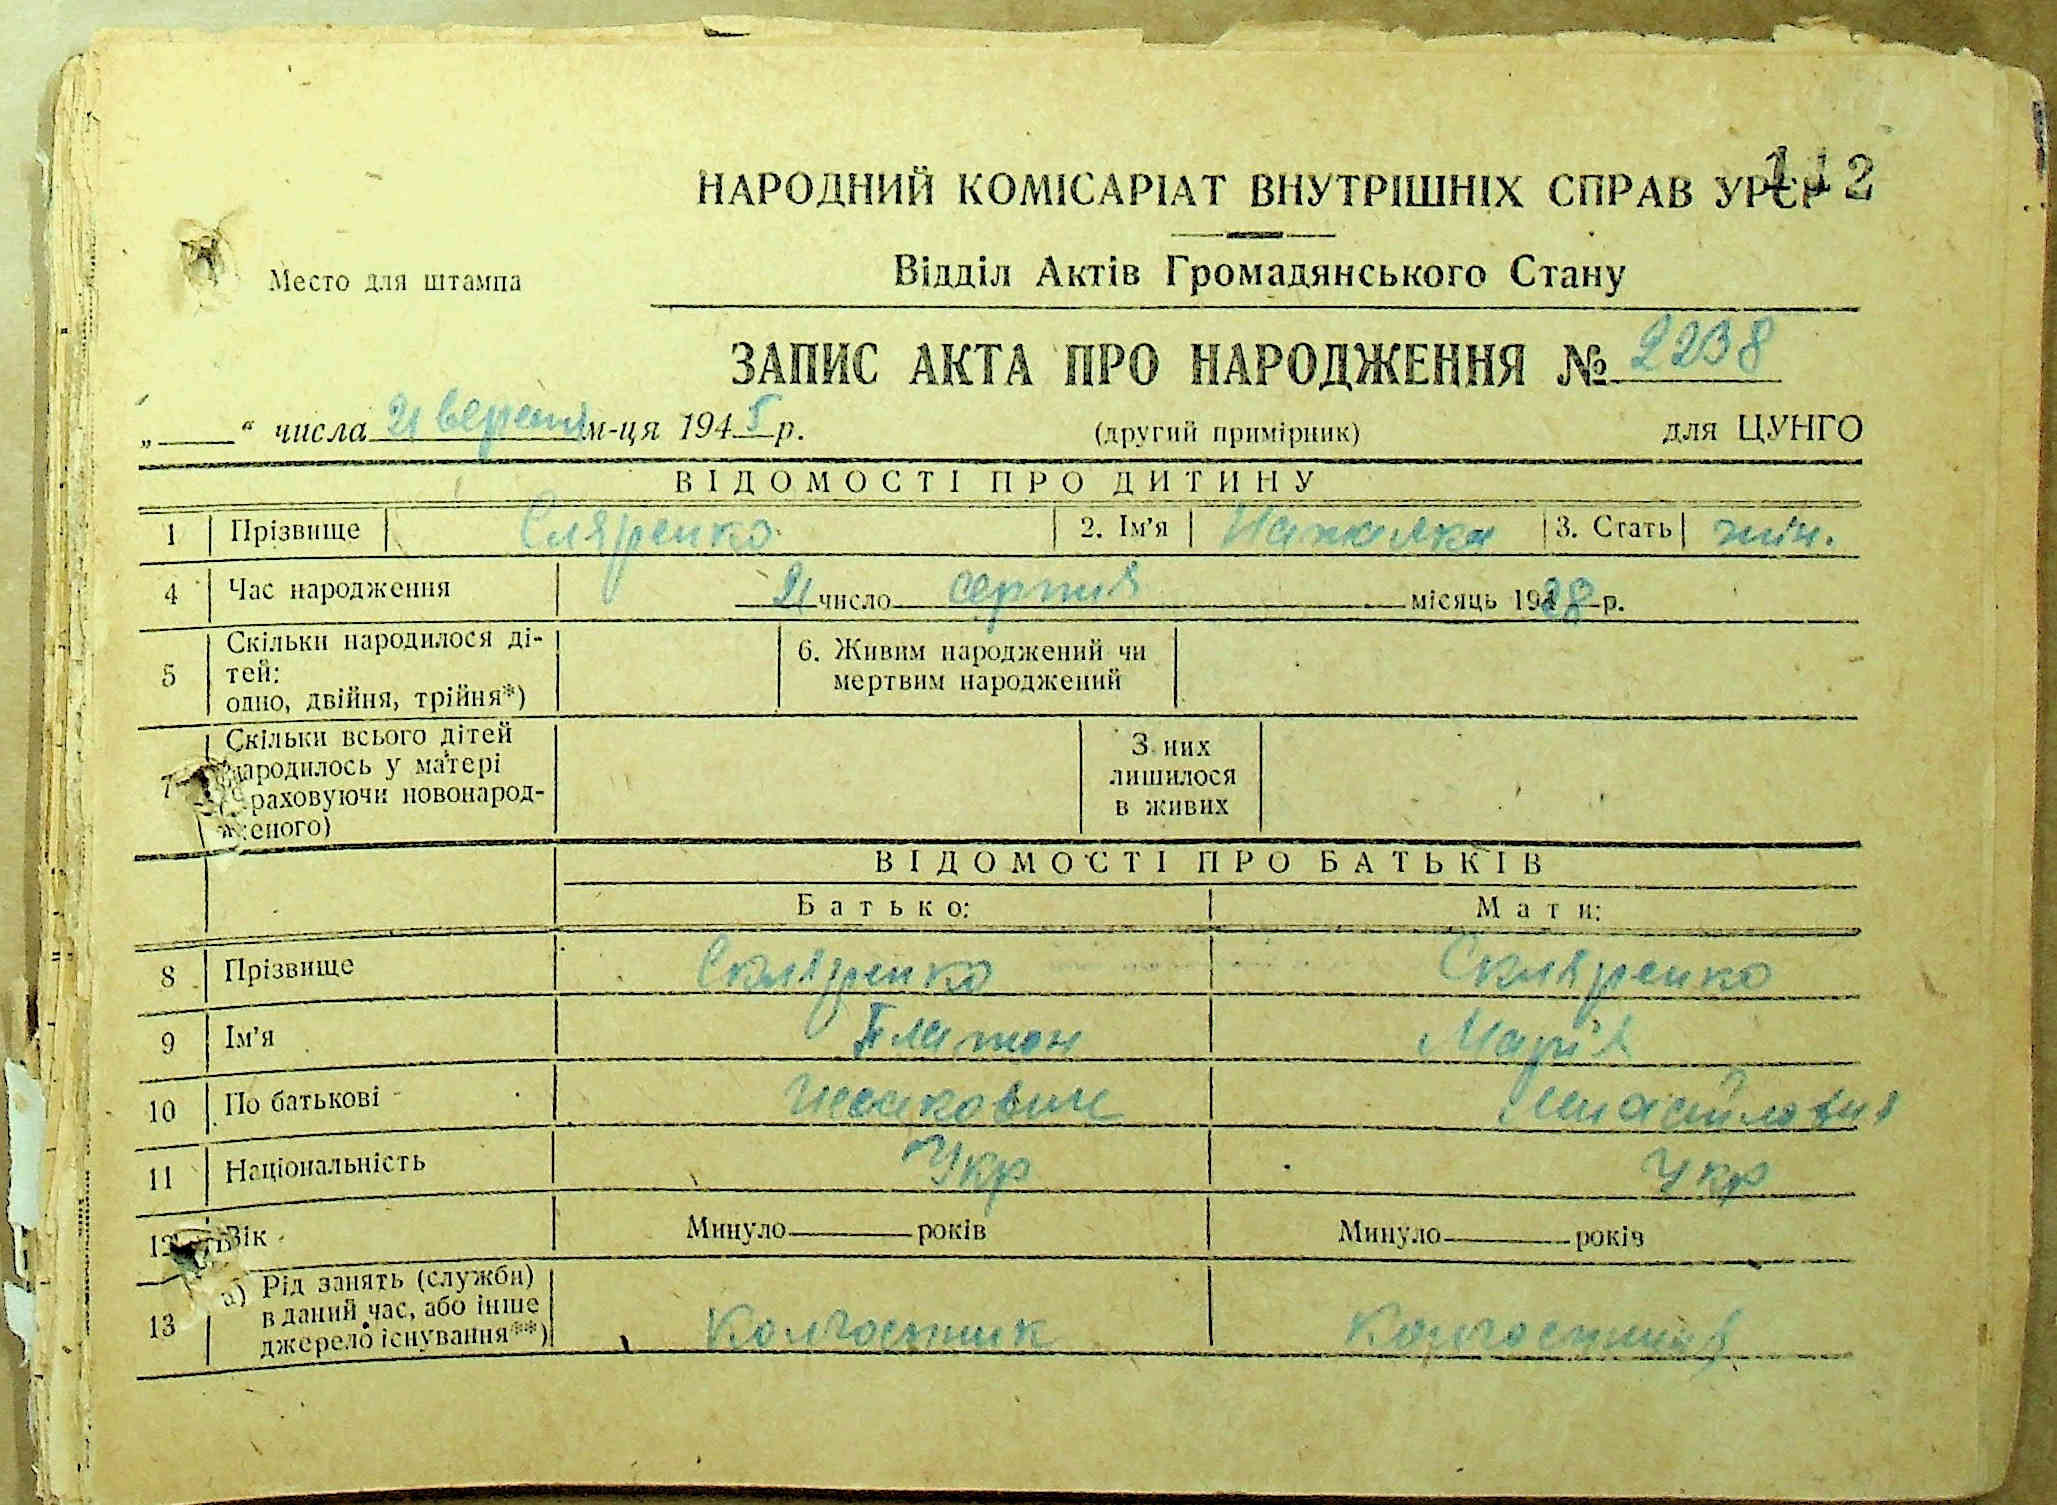 НАРОДНИЙ КОМІСАРІАТ ВНУТРІШНІХ СПРАВ УРСР 112
Место для штампа
Відділ Актів Громадянського Стану
ЗАПИС АКТА ПРО НАРОДЖЕННЯ № 2238
„ “ числа 21 вересня м-ця 1945 р. (другий примірник) для ЦУНГО
ВІДОМОСТІ ПРО ДИТИНУ
1 Прізвище Скляренко 2. Ім’я 3. Стать жін.
4 Час народження 21 число серпня місяць 1928 р.
5 Скільки народилося ді-
тей:
одно, двійня, трійня*)
6. Живим народжений чи
мертвим народжений
7 Скільки всього дітей
народилось у матері
раховуючи новонарод-
женого)
З них
лишилося
в живих
ВІДОМОСТІ ПРО БАТЬКІВ
Батько: Мати:
8 Прізвище Скляренко Скляренко
9 Ім’я Платон Марія
10 По батькові Ісакович
11 Національність Укр Укр
12 Вік Минуло років Минуло років
13 а) Рід занять (служби)
в даний час, або інше
джерело існування**)
Колгоспник Колгоспниця